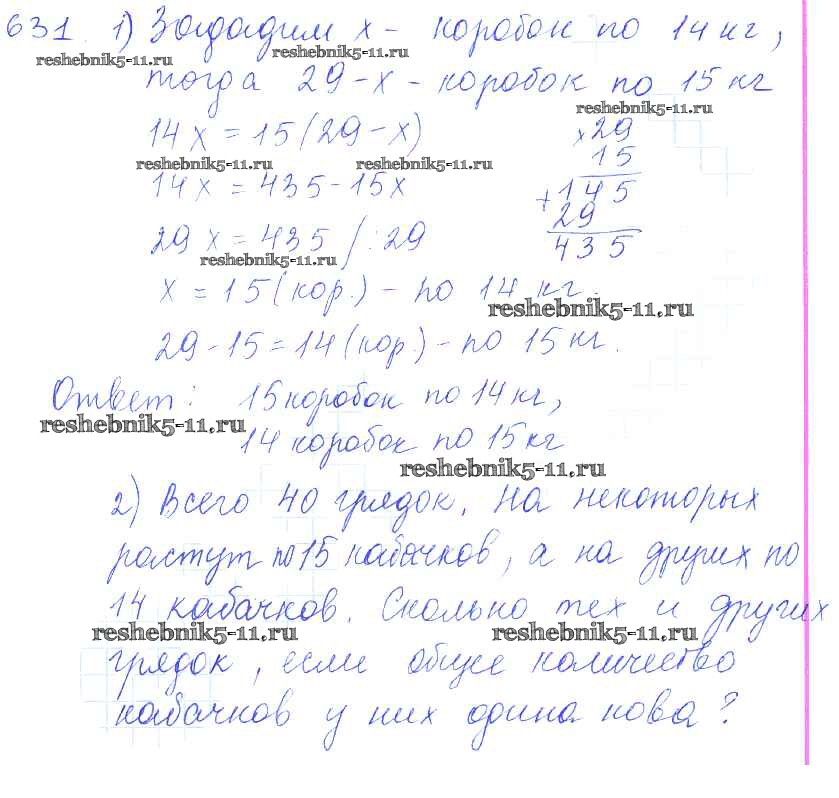 631. 1) Зададим x - коробок по 14 кг,
reshebnik5-11.ru reshebnik5-11.ru
тогда 29-x - коробок по 15 кг
reshebnik5-11.ru
14x = 15(29-x)
×29
15
reshebnik5-11.ru reshebnik5-11.ru
14x = 435-15x
+145
29
435
29x = 435 /:29
reshebnik5-11.ru
x = 15 (кор.) - по 14 кг.
reshebnik5-11.ru
29-15=14 (кор.) - по 15 кг.
Ответ: 15 коробок по 14 кг,
reshebnik5-11.ru
14 коробок по 15 кг
reshebnik5-11.ru
2) Всего 40 грядок. На некоторых
растут по 15 кабачков, а на других по
14 кабачков. Сколько тех и других
reshebnik5-11.ru reshebnik5-11.ru
грядок, если общее количество
кабачков у них одинаково?